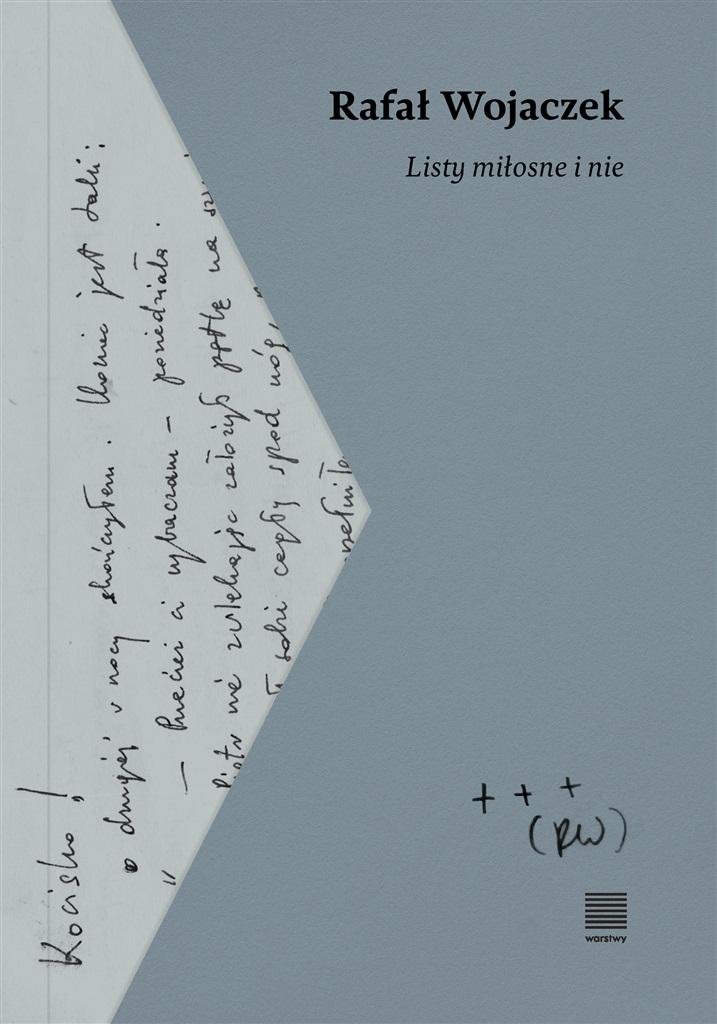 Rafał Wojaczek
Listy miłosne i nie
Kociśko!
o drugiej w nocy skończyłem. Koniec jest taki:
„
— Przecież ci wybaczam — powiedziała.
Piotr nie zwlekając założył pętlę na
sobie cegły spod nóg,
+ + +
(RW)
warstwy